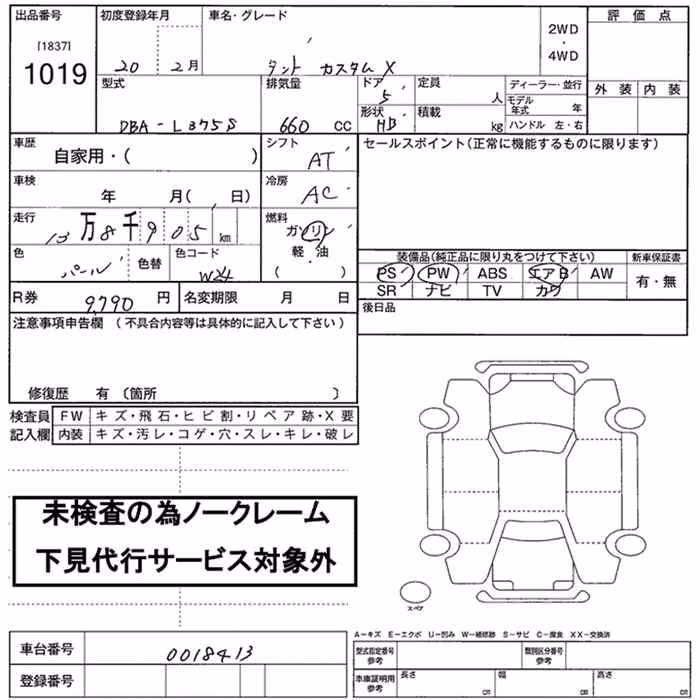 出品番号 初度登録年月 車名・グレード 評価点
[1837] 2WD
1019 20 2月 タント カスタム X ・ 4WD
型式 排気量 ドア 定員 ディーラー・並行 外装 内装
5 人 モデル年式 年
DBA-L375S 660 CC 形状 HB 積載 kg ハンドル 左・右
車歴 自家用・( ) シフト AT セールスポイント(正常に機能するものに限ります)
車検 年 月( 日) 冷房 AC
走行 13万8千905km 燃料 ガソリン
軽・油
( )
色 パール 色替 色コード W24 装備品(純正品に限り丸をつけて下さい) 新車保証書
PS PW ABS エアB AW 有・無
SR ナビ TV カワ
R券 9,790 円 名変期限 月 日 後日品
注意事項申告欄 (不具合内容等は具体的に記入して下さい)
修復歴 有 〔箇所 〕
検査員 FW キズ・飛石・ヒビ割・リペア跡・X要
記入欄 内装 キズ・汚レ・コゲ・穴・スレ・キレ・破レ
未検査の為ノークレーム
下見代行サービス対象外
スペア
A-キズ E-エクボ U-凹み W-補修跡 S-サビ C-腐食 XX-交換済
車台番号 0018413 型式指定番号 参考 類別区分番号 参考
登録番号 車庫証明用 参考 長さ cm 幅 cm 高さ cm